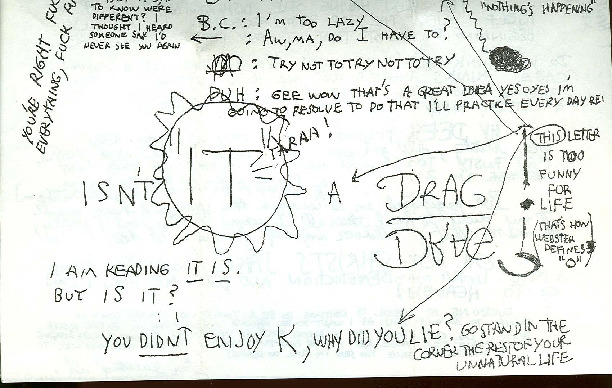 TO KNOW WERE
DIFFERENT? I
THOUGHT I HEARD
SOMEONE SAY I'D
NEVER SEE YOU AGAIN
YOU'RE RIGHT
EVERYTHING,
B.C.: I'M TOO LAZY
: AW, MA, DO I HAVE TO?
: TRY NOT TO TRY NOT TO TRY
: GEE WOW THAT'S A GREAT IDEA YES OYES I'M
GOING TO RESOLVE TO DO THAT I'LL PRACTICE EVERY DAY RE!
"NOTHING'S HAPPENING"
ISN'T "IT" A DRAG
TARAA!
DRAG
THIS LETTER
IS TOO
FUNNY
FOR
LIFE
(THAT'S HOW
WEBSTER
DEFINES
"O")
I AM READING IT IS.
BUT IS IT?
YOU DIDNT ENJOY K, WHY DID YOU LIE? GO STAND IN THE
CORNER THE REST OF YOUR
UNNATURAL LIFE